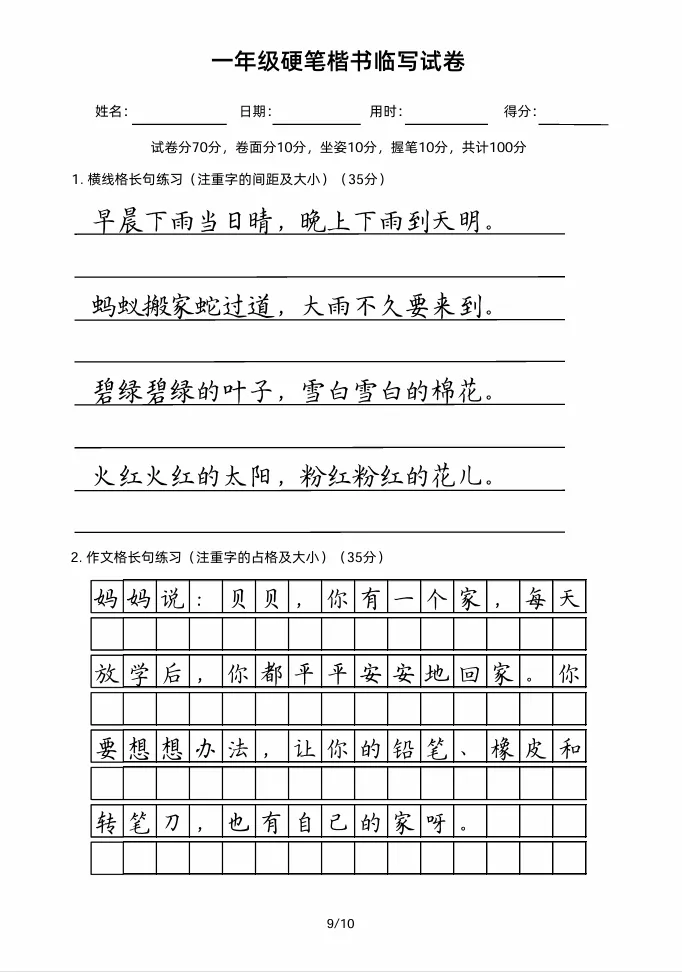 一年级硬笔楷书临写试卷
姓名: 日期: 用时: 得分:
试卷分70分，卷面分10分，坐姿10分，握笔10分，共计100分
1. 横线格长句练习（注重字的间距及大小）（35分）
早晨下雨当日晴，晚上下雨到天明。
蚂蚁搬家蛇过道，大雨不久要来到。
碧绿碧绿的叶子，雪白雪白的棉花。
火红火红的太阳，粉红粉红的花儿。
2. 作文格长句练习（注重字的占格及大小）（35分）
妈妈说：贝贝，你有一个家，每天
放学后，你都平平安安地回家。你
要想想办法，让你的铅笔、橡皮和
转笔刀，也有自己的家呀。
9/10